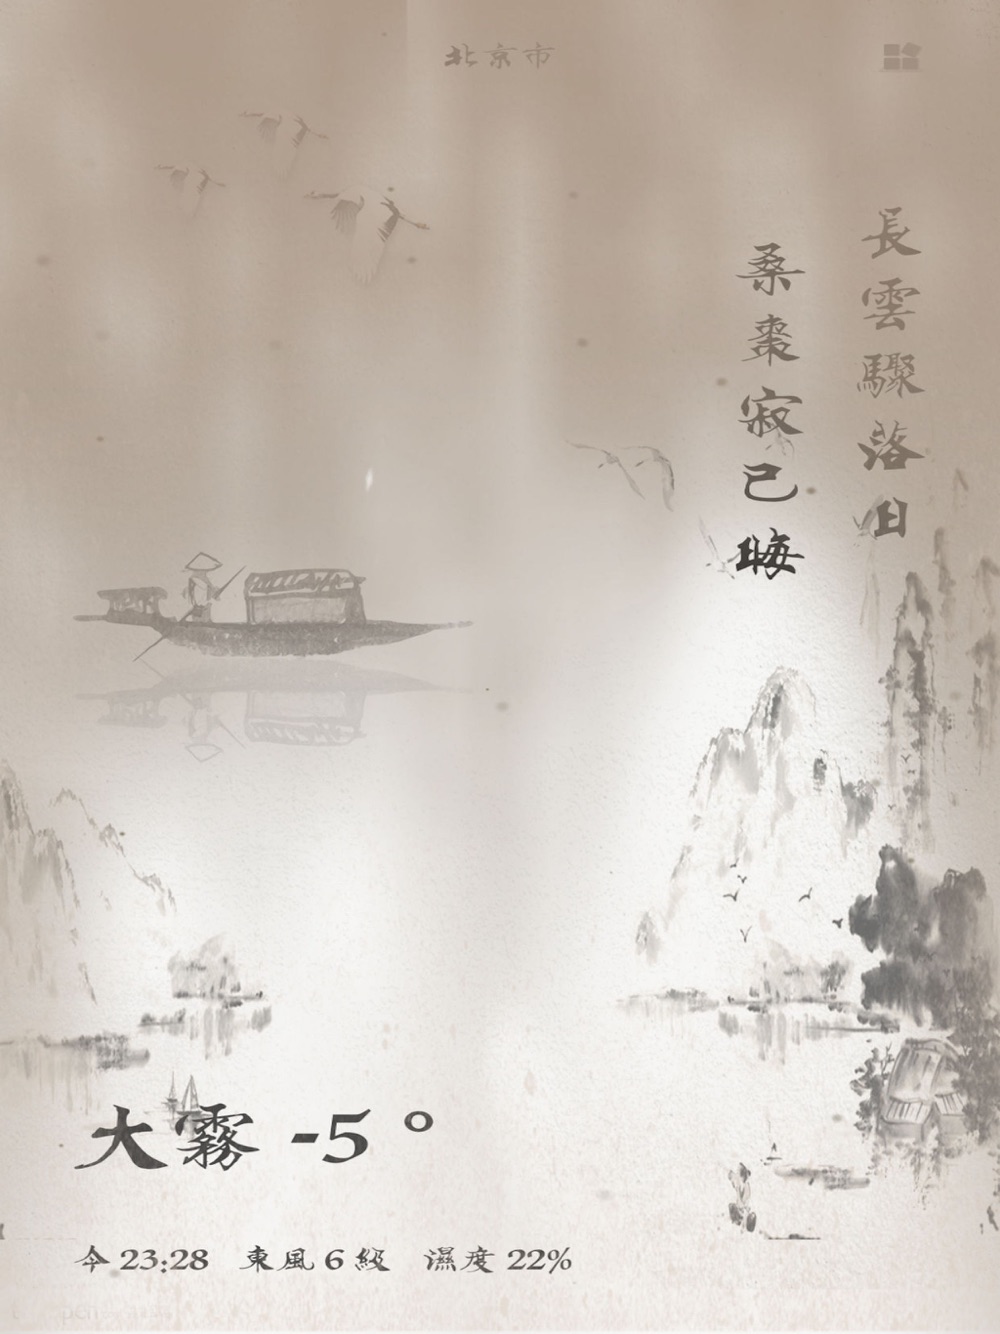 北京市
長雲驟落日
桑棗寂已晦
大霧 -5°
今 23:28 東風 6 級 濕度 22%